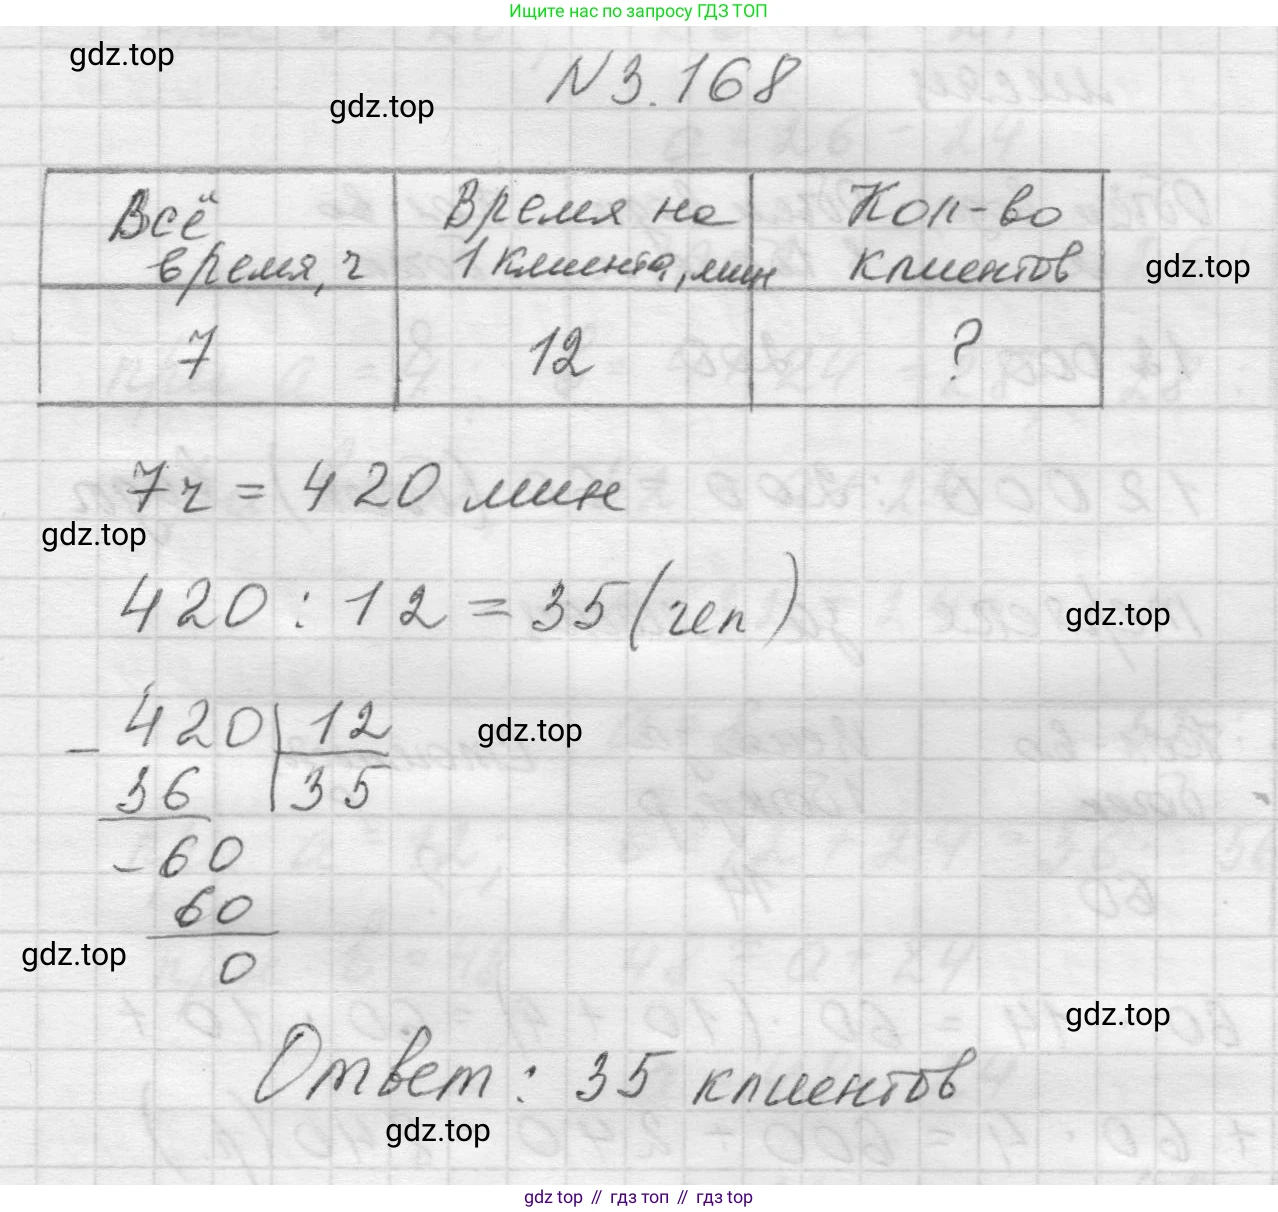 Ищите нас по запросу ГДЗ ТОП
gdz.top
gdz.top
N 3.168
Всё время, ч
Время на 1 клиента, мин
Кол-во клиентов
gdz.top
7
12
?
7 ч = 420 мин
gdz.top
420 : 12 = 35 (чел)
gdz.top
- 420 | 12
gdz.top
36 | 35
- 60
60
gdz.top
0
gdz.top
Ответ: 35 клиентов
gdz.top
gdz top // гдз топ // гдз top